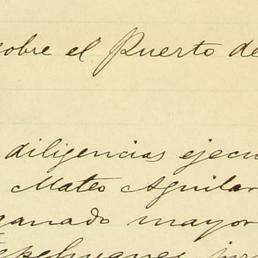 sobre el Puerto de
diligencias ejecu
Mateo Aguilar
ganado mayor